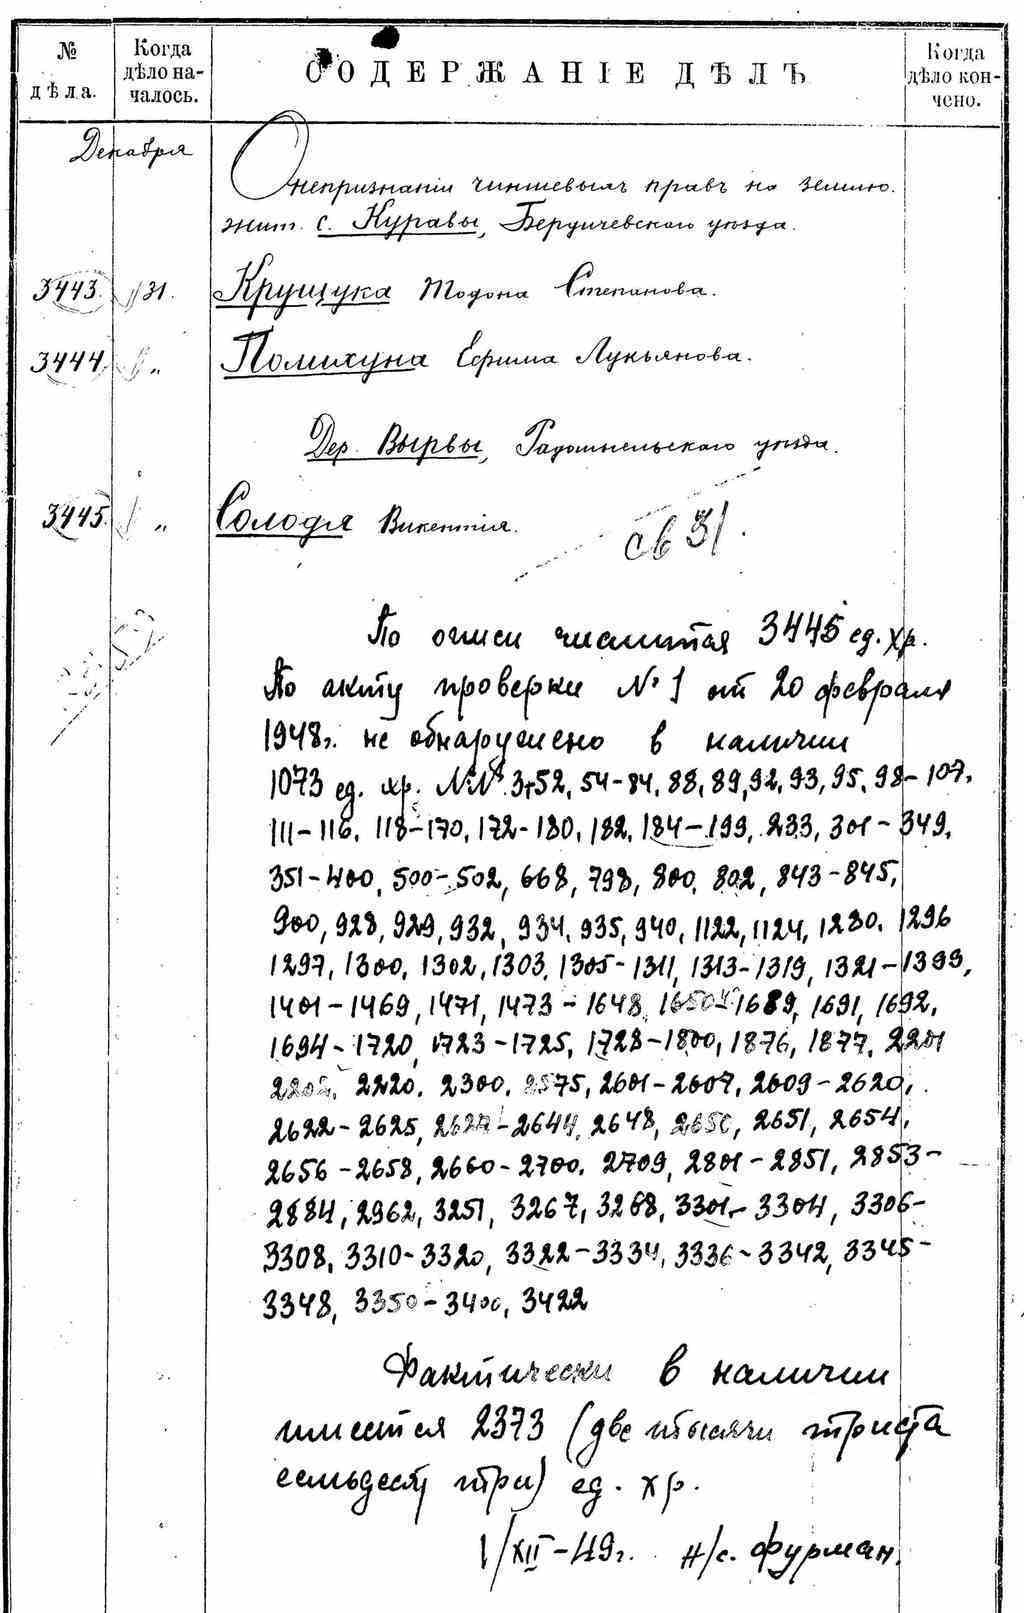 № дѣла.
Когда дѣло началось.
СОДЕРЖАНІЕ ДѢЛЪ
Когда дѣло кончено.
Декабря
О непризнаніи чиншевыхъ правъ на землю
жит. с. Куравы, Бердичевскаго уѣзда.
3443. 31. Крущука Тодона Степанова.
3444. " Помихуна Ефима Лукьянова.
Дер. Вырвы, Радомысльскаго уѣзда.
3445. " Солодъя Викентія.
св 31.
По описи числится 3445 ед. хр.
По акту проверки № 1 от 20 февраля
1948г. не обнаружено в наличии
1073 ед. хр. №№ 3-52, 54-84, 88, 89, 92, 93, 95, 98-107,
111-116, 118-170, 172-180, 182, 184-199, 233, 301-349,
351-400, 500-502, 668, 798, 800, 802, 843-845,
900, 928, 929, 932, 934, 935, 940, 1122, 1124, 1280, 1296
1297, 1300, 1302, 1303, 1305-1311, 1313-1319, 1321-1399,
1401-1469, 1471, 1473-1648, 1650-1689, 1691, 1692,
1694-1720, 1723-1725, 1728-1800, 1876, 1877, 2201
2202, 2220, 2300, 2575, 2601-2607, 2609-2620,
2622-2625, 2627-2644, 2648, 2650, 2651, 2654,
2656-2658, 2660-2700, 2709, 2801-2851, 2853-
2884, 2962, 3251, 3267, 3268, 3301-3304, 3306-
3308, 3310-3320, 3322-3334, 3336-3342, 3345-
3348, 3350-3400, 3422
Фактически в наличии
имеется 2373 (две тысячи триста
семьдесят три) ед. хр.
1/XII-49г. н/с. Фурман.